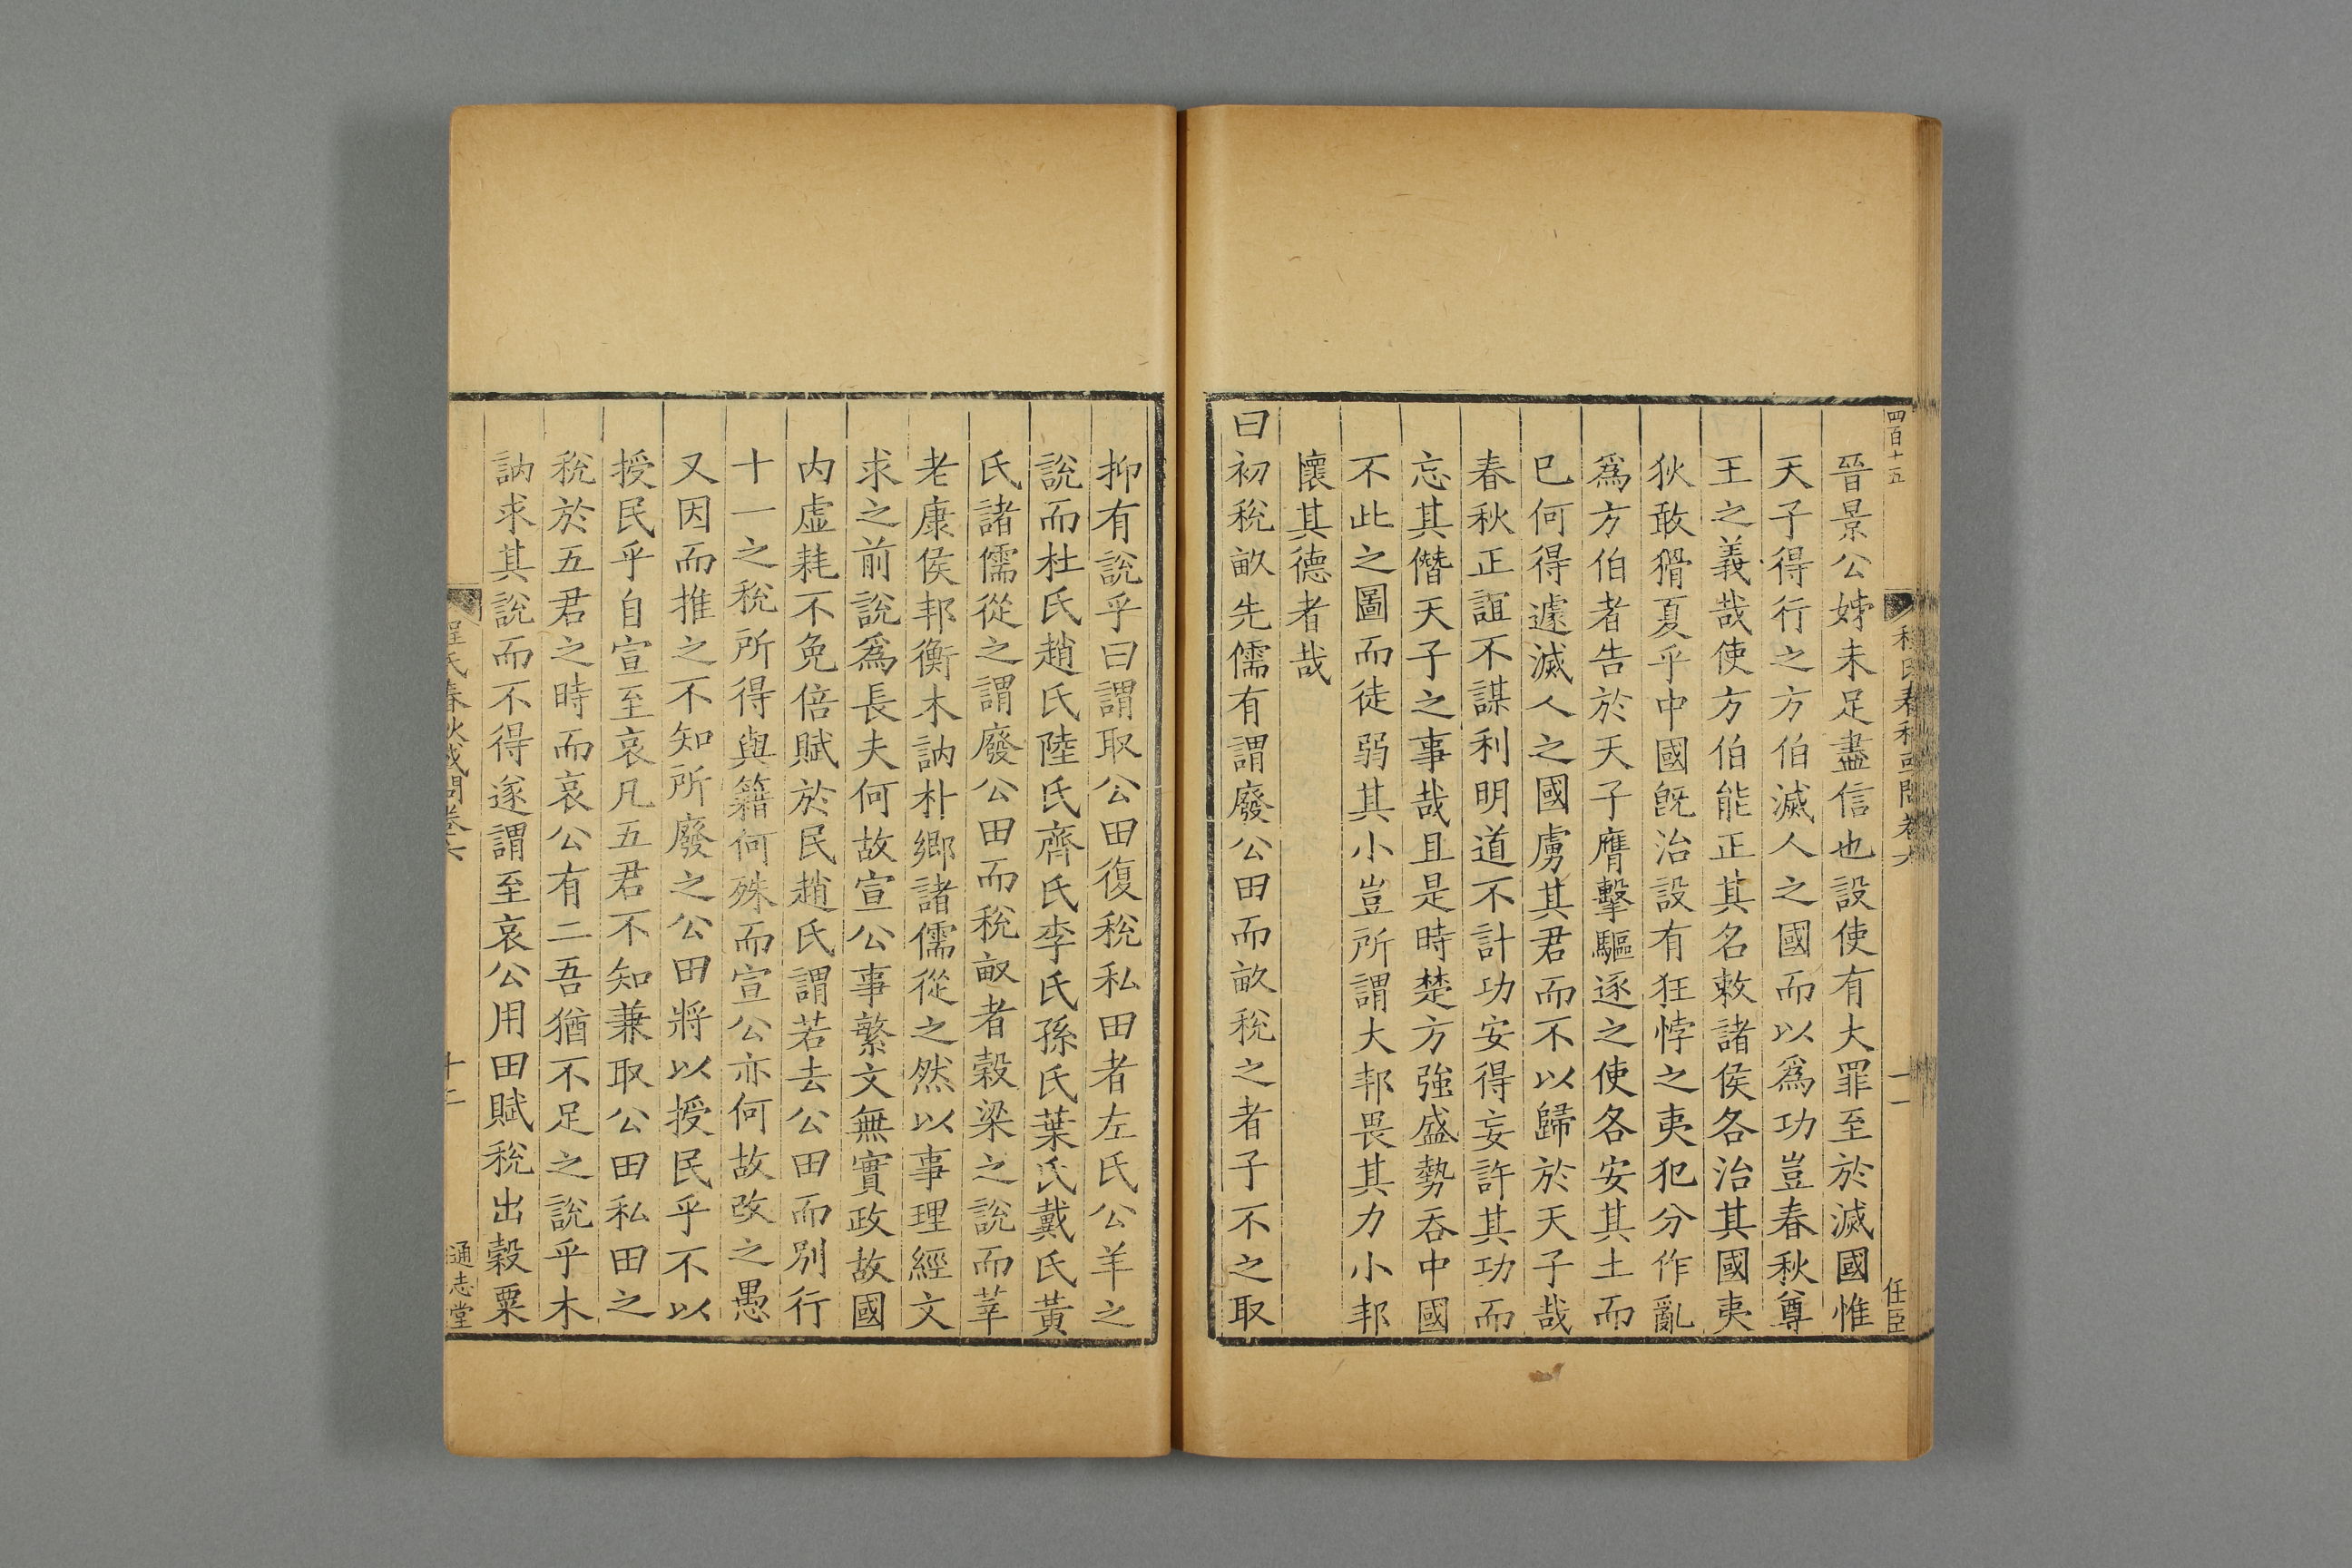 四百十五
程氏春秋或問卷六
十一
任臣
晉景公姊未足盡信也設使有大罪至於滅國惟
天子得行之方伯滅人之國而以爲功豈春秋尊
王之義哉使方伯能正其名敕諸侯各治其國夷
狄敢猾夏乎中國旣治設有狂悖之夷犯分作亂
爲方伯者告於天子膺擊驅逐之使各安其土而
已何得遽滅人之國虜其君而不以歸於天子哉
春秋正誼不謀利明道不計功安得妄許其功而
忘其僭天子之事哉且是時楚方強盛勢吞中國
不此之圖而徒弱其小豈所謂大邦畏其力小邦
懷其德者哉
曰初稅畝先儒有謂廢公田而畝稅之者子不之取
抑有說乎曰謂取公田復稅私田者左氏公羊之
說而杜氏趙氏陸氏齊氏李氏孫氏葉氏戴氏黃
氏諸儒從之謂廢公田而稅畝者穀梁之說而莘
老康侯邦衡木訥朴鄉諸儒從之然以事理經文
求之前說爲長夫何故宣公事繁文無實政故國
内虛耗不免倍賦於民趙氏謂若去公田而別行
十一之稅所得與籍何殊而宣公亦何故改之愚
又因而推之不知所廢之公田將以授民乎不以
授民乎自宣至哀凡五君不知兼取公田私田之
稅於五君之時而哀公有二吾猶不足之說乎木
訥求其說而不得遂謂至哀公用田賦稅出穀粟
程氏春秋或問卷六
十二
通志堂